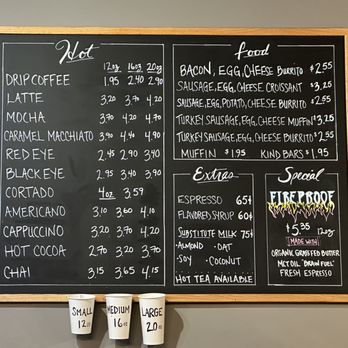 Hot
12oz 16oz 20oz
DRIP COFFEE 1.95 2.40 2.90
LATTE 3.20 3.70 4.20
MOCHA 3.70 4.20 4.70
CARAMEL MACCHIATO 3.90 4.40 4.90
RED EYE 2.45 2.90 3.40
BLACK EYE 2.95 3.40 3.90
CORTADO 4oz 3.59
AMERICANO 3.10 3.60 4.10
CAPPUCCINO 3.20 3.70 4.20
HOT COCOA 2.70 3.20 3.70
CHAI 3.15 3.65 4.15
food
BACON, EGG, CHEESE BURRITO $2.55
SAUSAGE, EGG, CHEESE CROISSANT $3.25
SAUSAGE, EGG, POTATO, CHEESE BURRITO $2.55
TURKEY SAUSAGE, EGG, CHEESE MUFFIN $3.25
TURKEY SAUSAGE, EGG, CHEESE BURRITO $2.55
MUFFIN $1.95 KIND BARS $1.95
Extras
ESPRESSO 65¢
FLAVORED SYRUP 60¢
SUBSTITUTE MILK 75¢
•ALMOND •OAT
•SOY •COCONUT
HOT TEA AVAILABLE
Special
FIREPROOF
$5.35 12oz
MADE WITH
ORGANIC GRASSFED BUTTER
MCT OIL "BRAIN FUEL"
FRESH ESPRESSO
SMALL 12oz
MEDIUM 16oz
LARGE 20oz